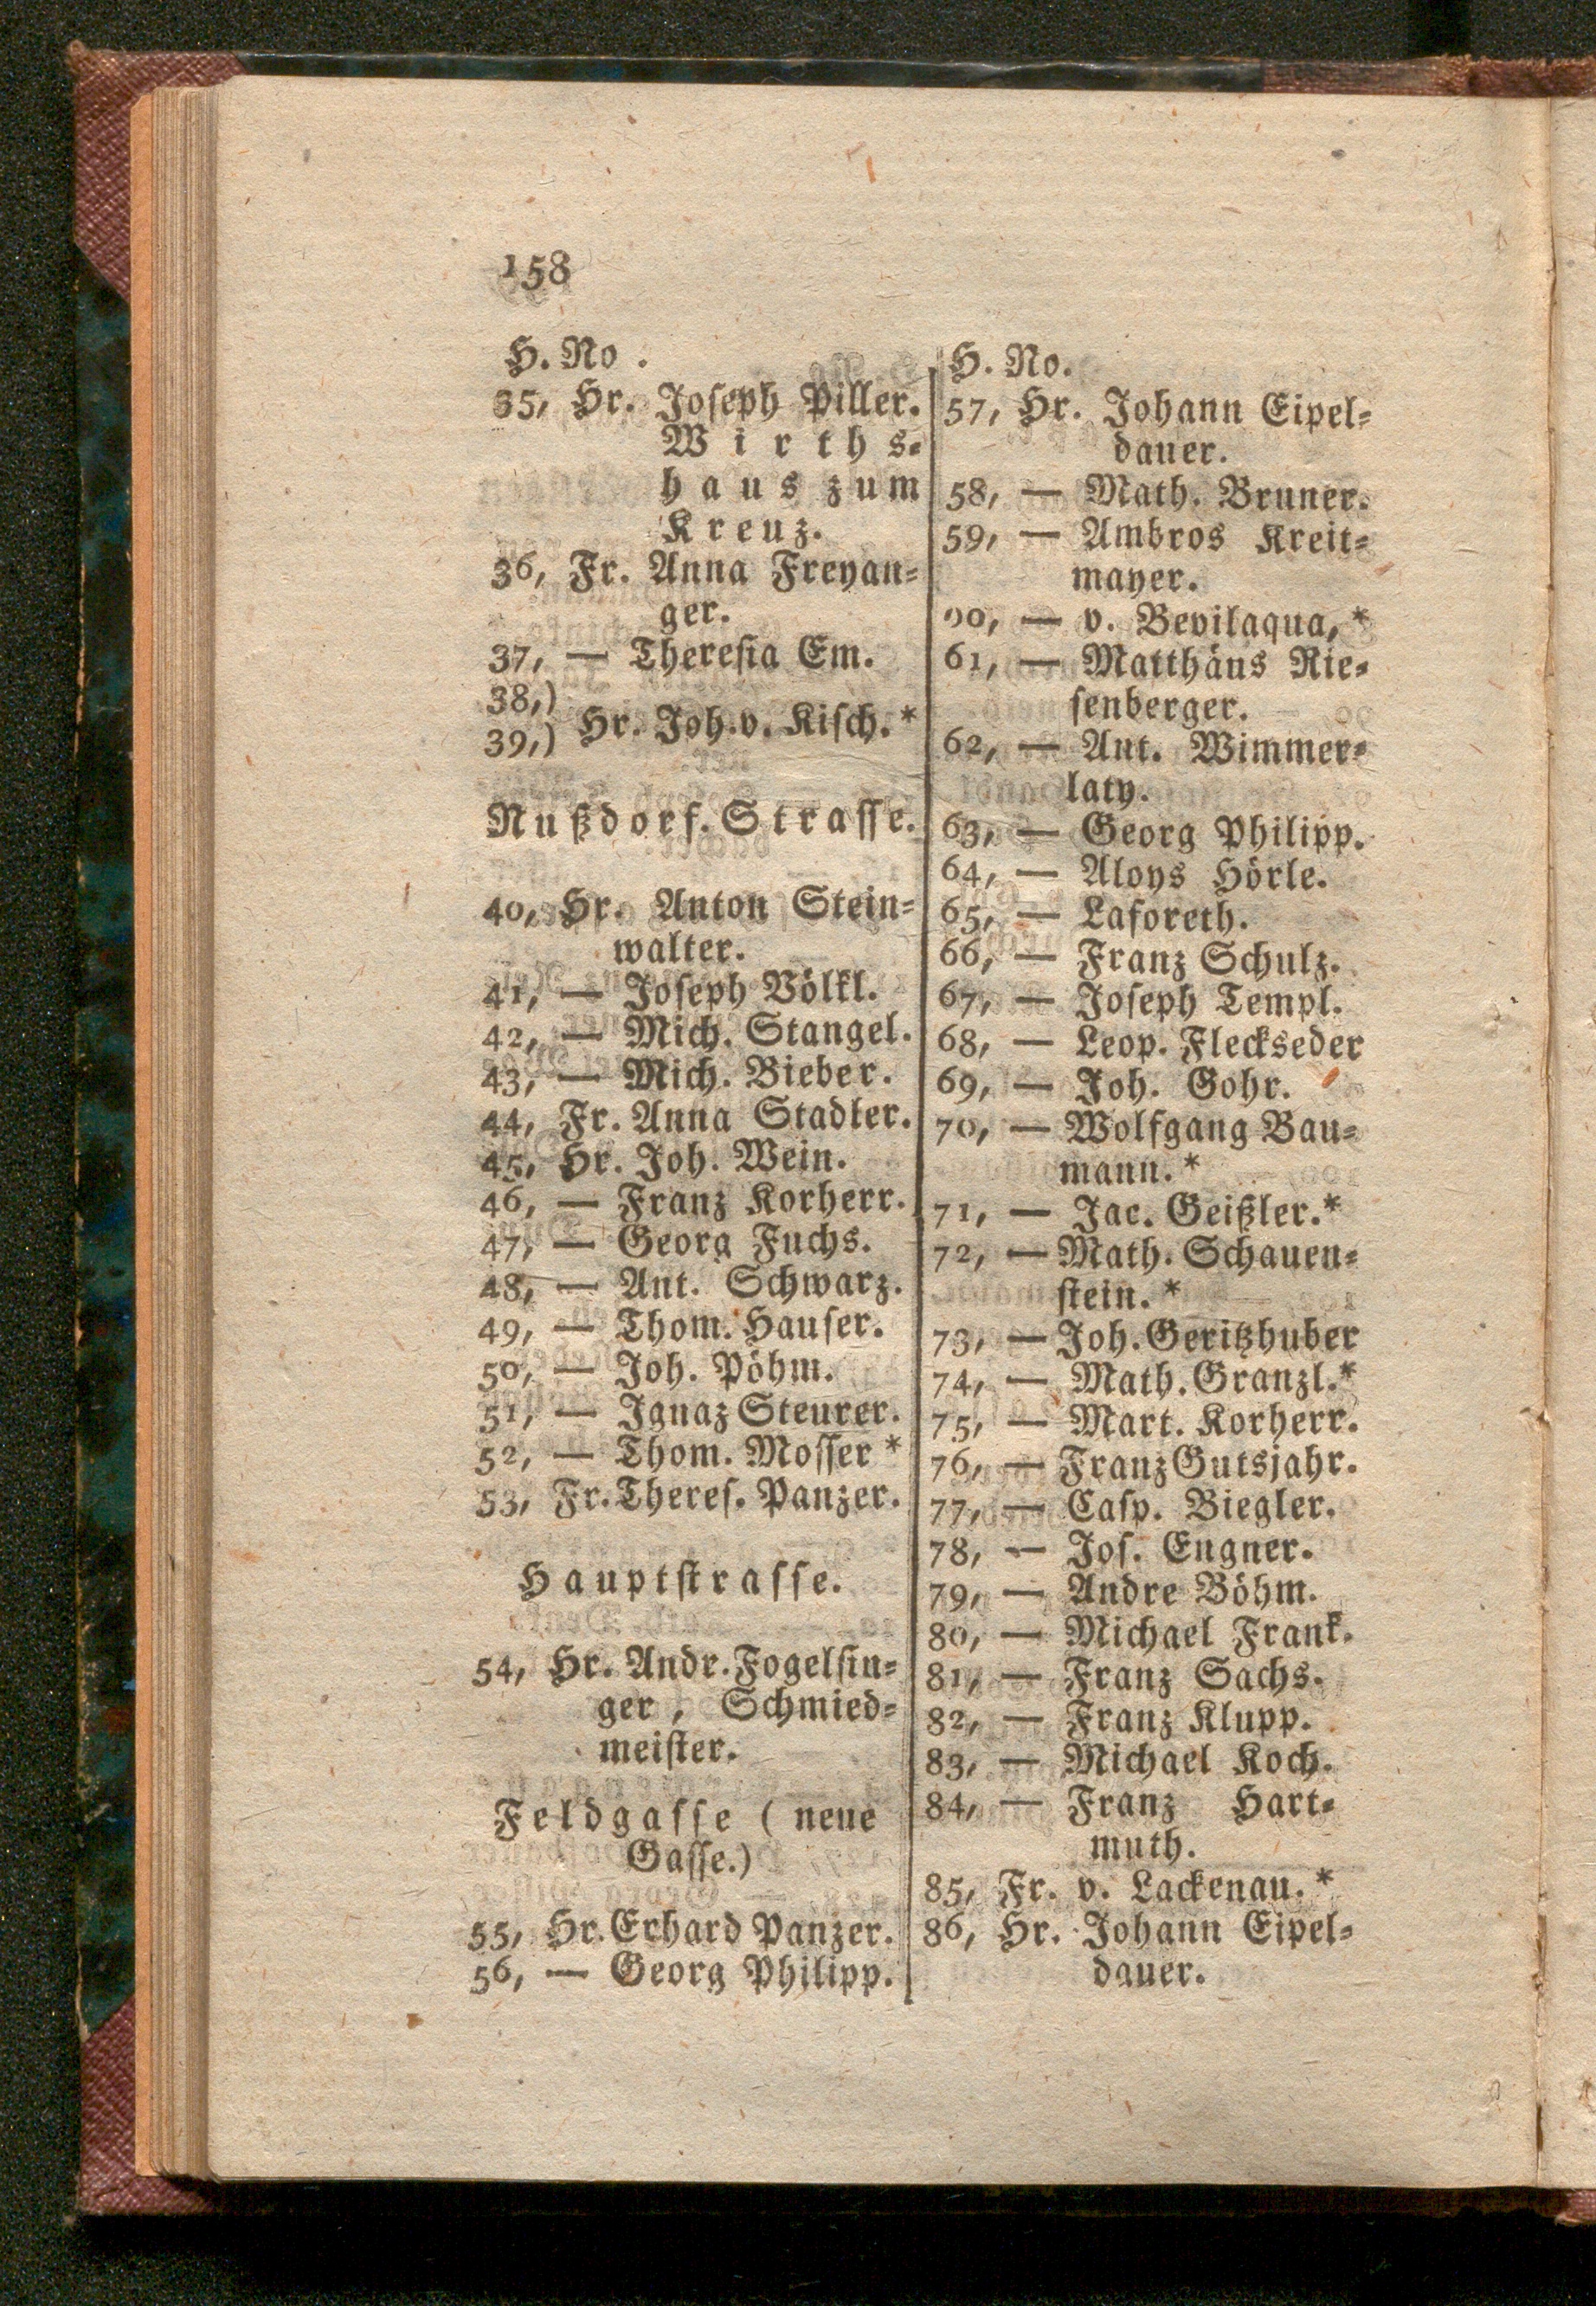 158
H. No.
35, Hr. Joseph Piller.
Wirths-
haus zum
Kreuz.
36, Fr. Anna Freyan-
ger.
37, — Theresia Em.
38,)
39,) Hr. Joh. v. Kisch. *
Nußdorf. Strasse.
40, Hr. Anton Stein-
walter.
41, — Joseph Völkl.
42, — Mich. Stangel.
43, — Mich. Bieber.
44, Fr. Anna Stadler.
45, Hr. Joh. Wein.
46, — Franz Korherr.
47, — Georg Fuchs.
48, — Ant. Schwarz.
49, — Thom. Hauser.
50, — Joh. Pöhm.
51, — Ignaz Steurer.
52, — Thom. Mosser *
53, Fr. Theres. Panzer.
Hauptstrasse.
54, Hr. Andr. Fogelsin-
ger, Schmied-
meister.
Feldgasse (neue
Gasse.)
55, Hr. Erhard Panzer.
56, — Georg Philipp.
H. No.
57, Hr. Johann Eipel-
dauer.
58, — Math. Bruner.
59, — Ambros Kreit-
mayer.
60, — v. Bevilaqua, *
61, — Matthäus Rie-
senberger.
62, — Ant. Wimmer-
laty.
63, — Georg Philipp.
64, — Aloys Hörle.
65, — Laforeth.
66, — Franz Schulz.
67, — Joseph Templ.
68, — Leop. Fleckseder
69, — Joh. Gohr.
70, — Wolfgang Bau-
mann. *
71, — Jac. Geißler. *
72, — Math. Schauen-
stein. *
73, — Joh. Geritzhuber
74, — Math. Granzl. *
75, — Mart. Korherr.
76, — Franz Gutsjahr.
77, — Casp. Biegler.
78, — Jos. Engner.
79, — Andre Böhm.
80, — Michael Frank.
81, — Franz Sachs.
82, — Franz Klupp.
83, — Michael Koch.
84, — Franz Hart-
muth.
85, Fr. v. Lackenau. *
86, Hr. Johann Eipel-
dauer.